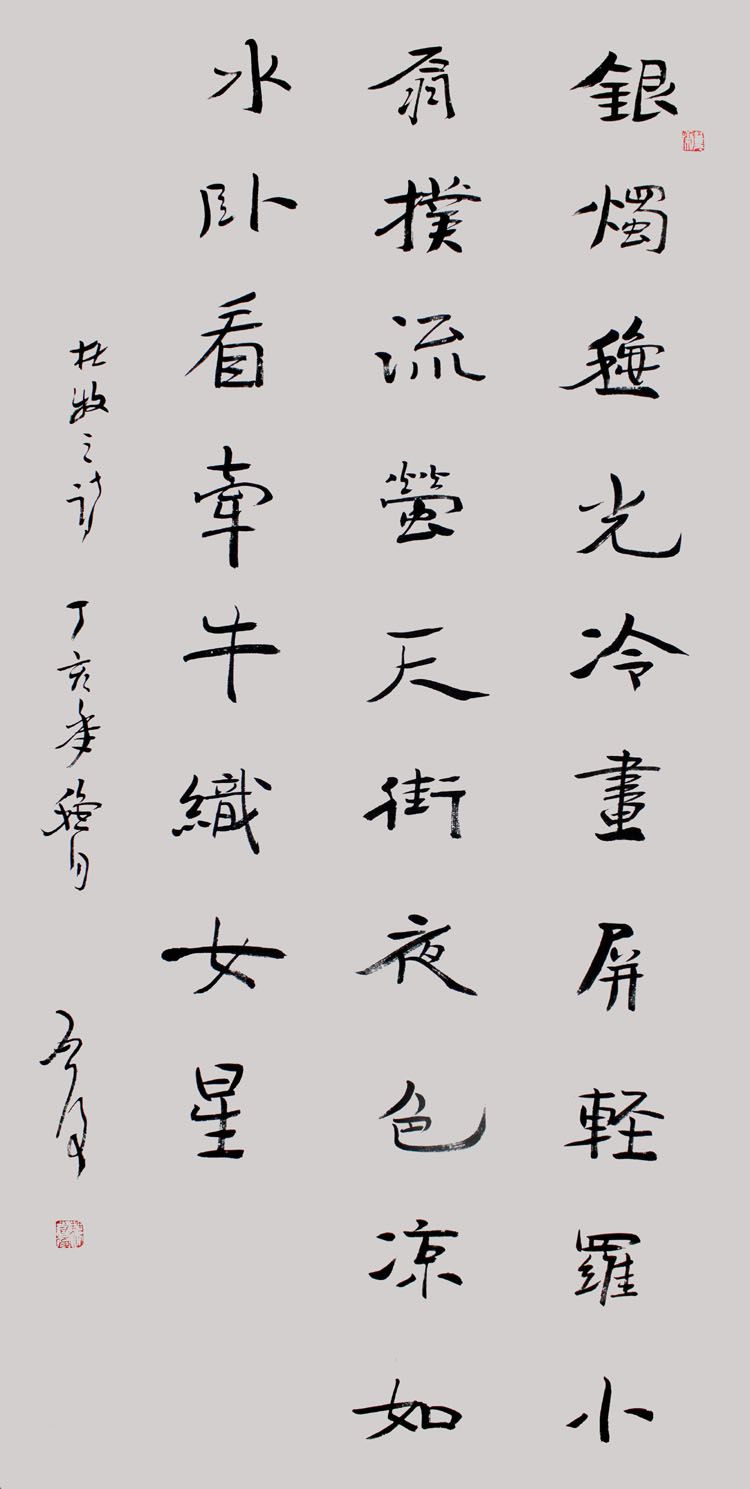 銀燭穐光冷畫屏軽羅小
扇撲流螢天街夜色凉如
水卧看牽牛織女星
杜牧之詩 丁亥年穐月